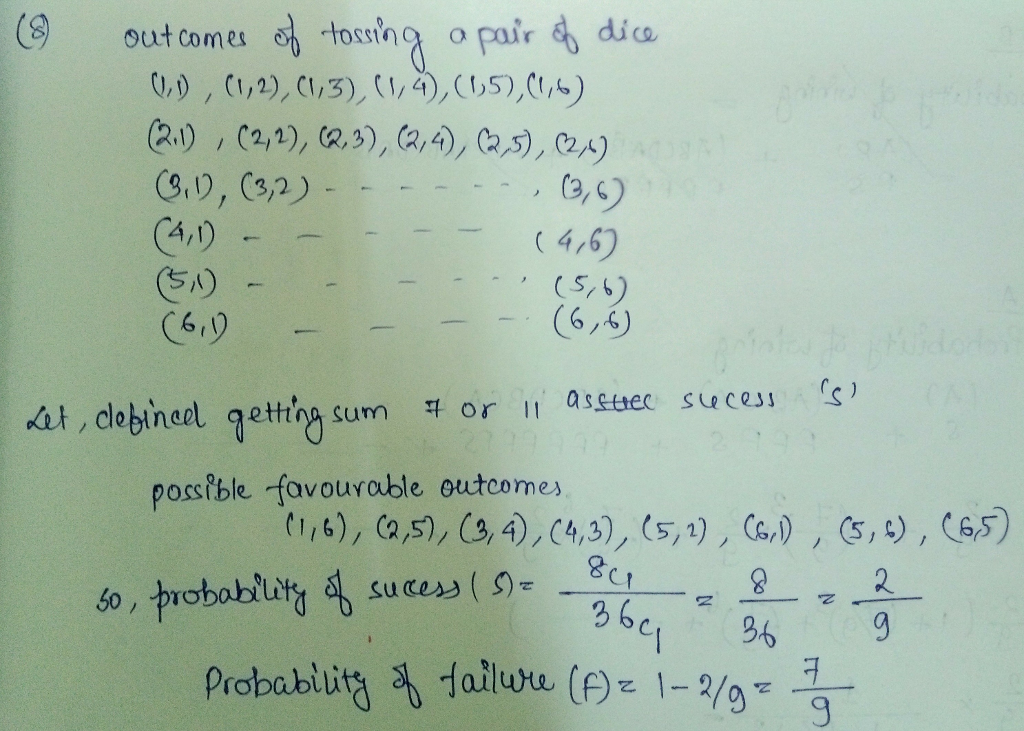 (8) outcomes of tossing a pair of dice
(1,1), (1,2), (1,3), (1,4), (1,5), (1,6)
(2,1), (2,2), (2,3), (2,4), (2,5), (2,6)
(3,1), (3,2) - - - - - - - , (3,6)
(4,1) - - - - - (4,6)
(5,1) - - - - - , (5,6)
(6,1) - - - - - (6,6)
Let, defined getting sum 7 or 11 as sucess 's'
possible favourable outcomes
(1,6), (2,5), (3,4), (4,3), (5,2), (6,1), (5,6), (6,5)
so, probability of sucess (S) = 8C1 / 36C1 = 8/36 = 2/9
Probability of failure (F) = 1 - 2/9 = 7/9